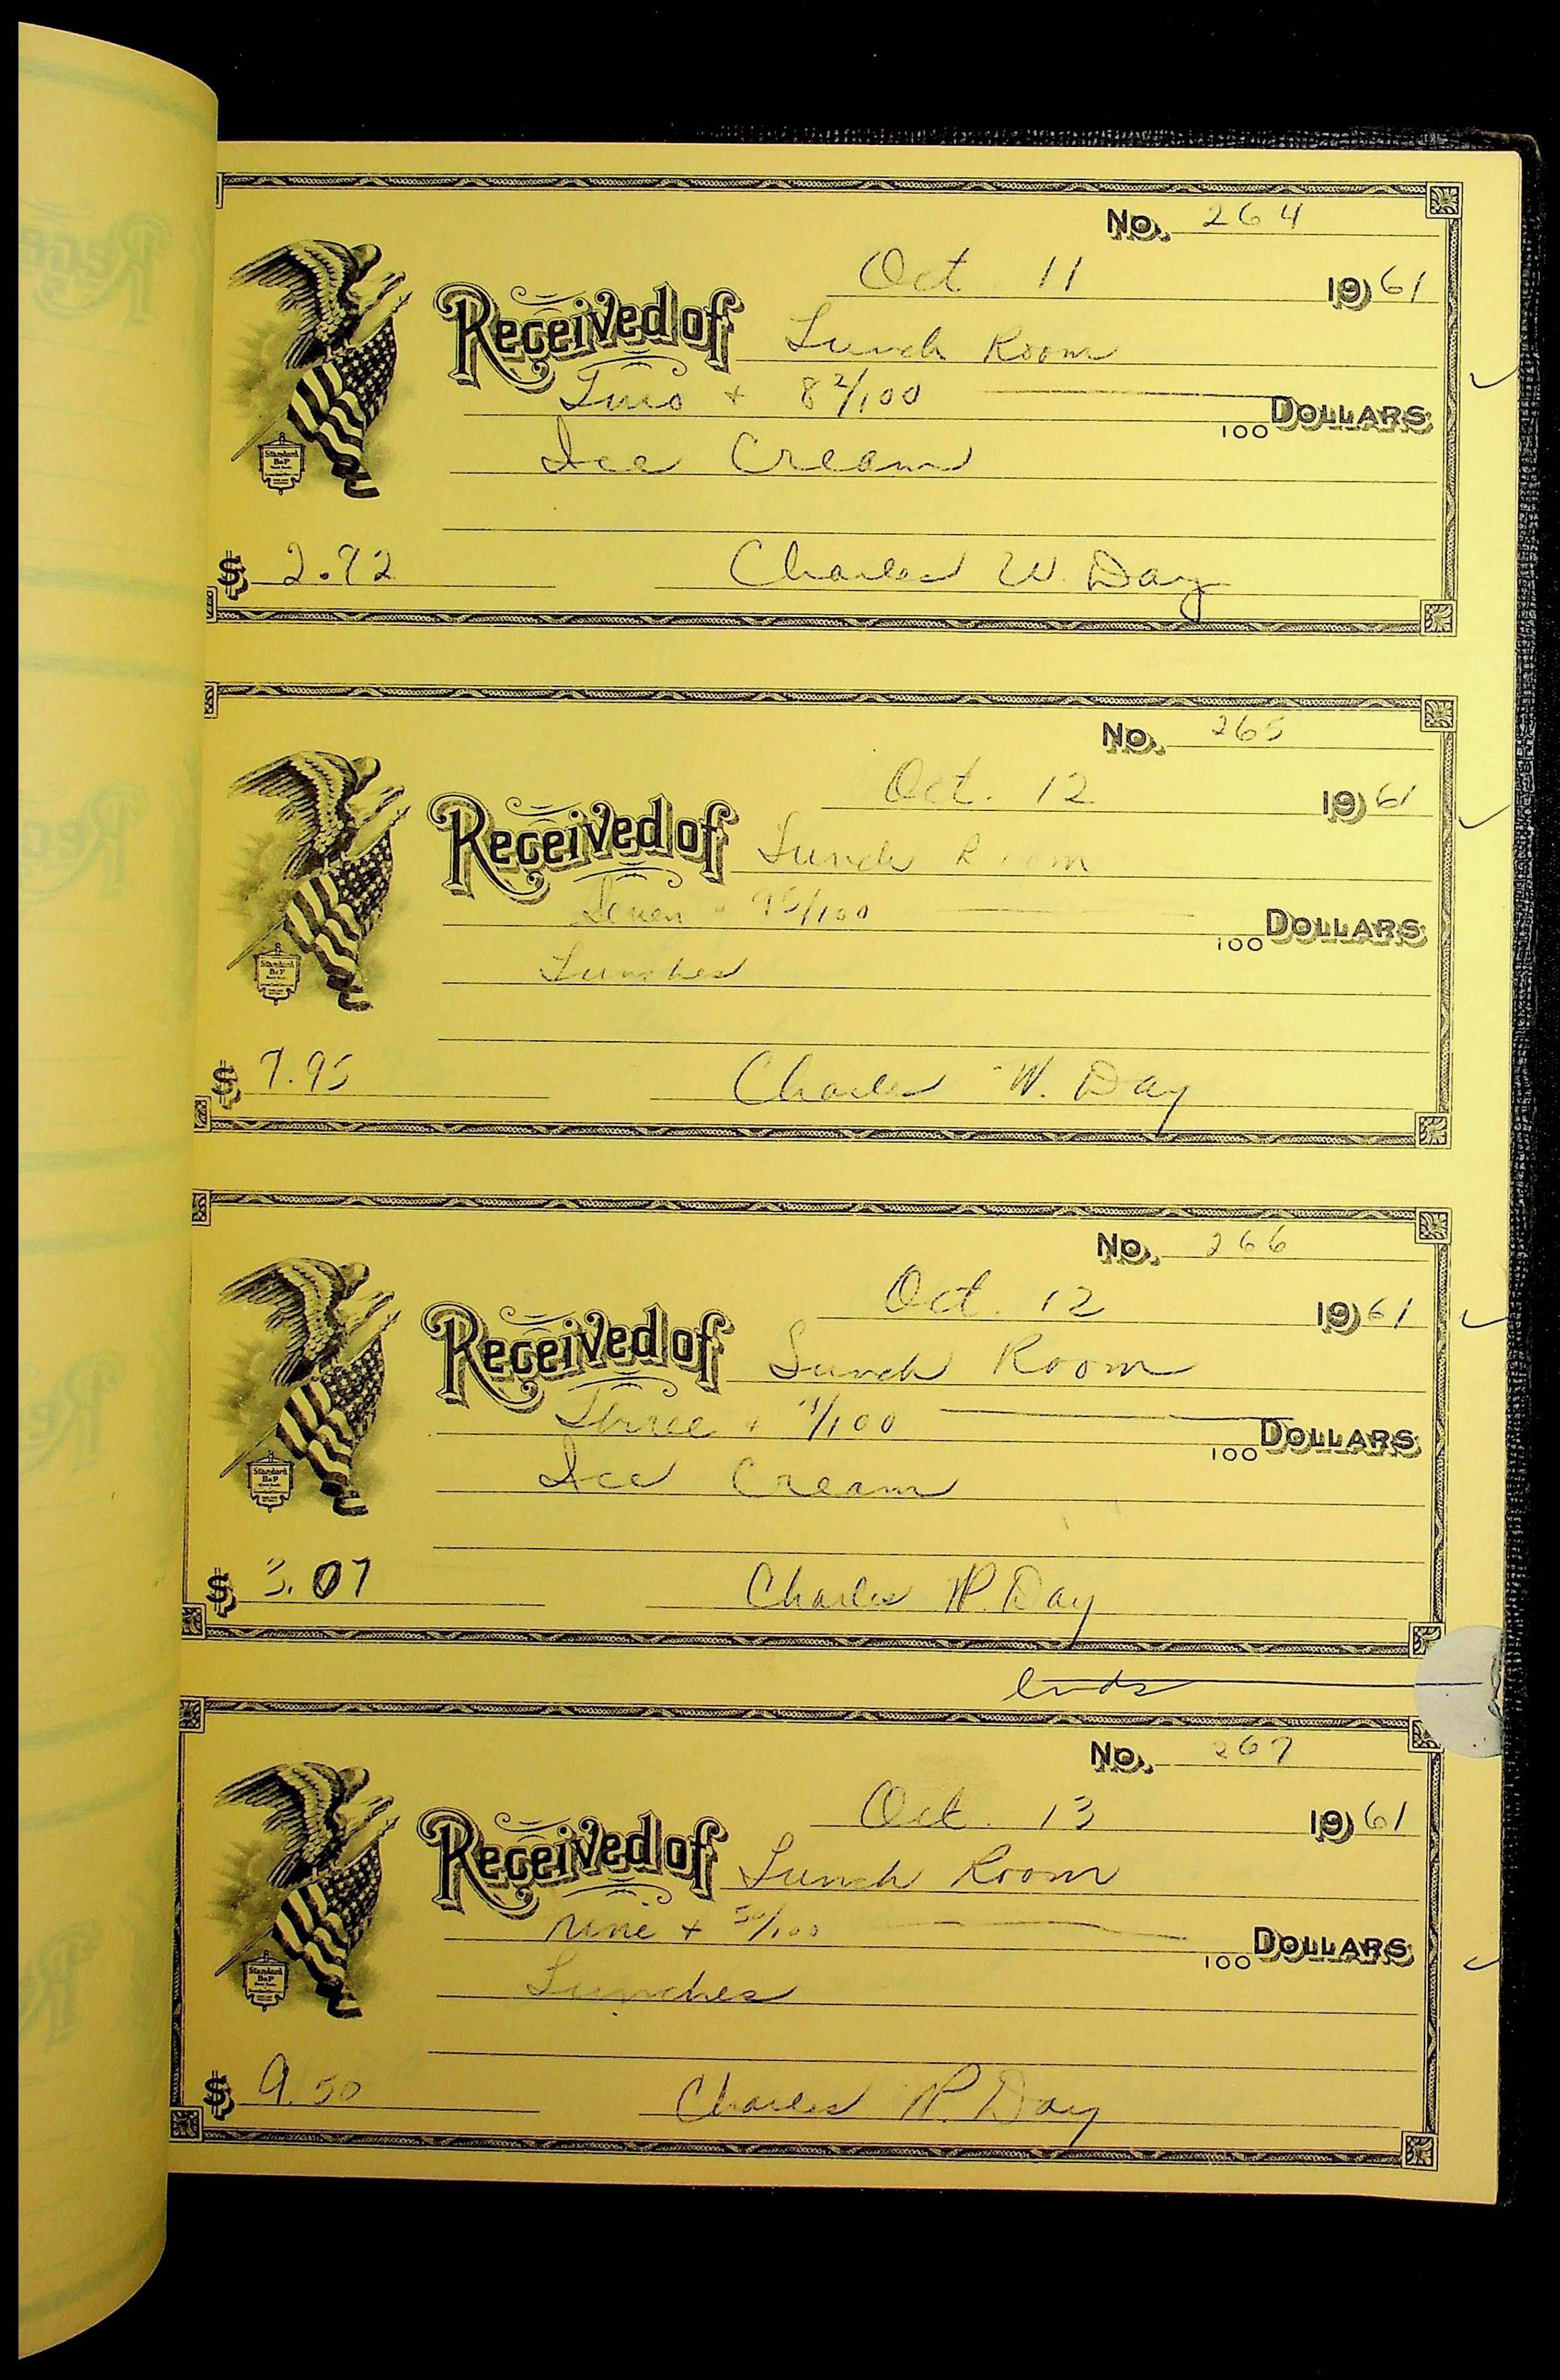 No. 264
Oct 11 1961
Received of Lunch Room
Two + 82/100 100 DOLLARS
Ice Cream
$ 2.82 Charles W. Day
No. 265
Oct. 12 1961
Received of Lunch Room
Seven + 95/100 100 DOLLARS
Lunches
$ 7.95 Charles W. Day
No. 266
Oct. 12 1961
Received of Lunch Room
Three + /100 100 DOLLARS
Ice Cream
$ 3.07 Charles W. Day
ends
No. 267
Oct. 13 1961
Received of Lunch Room
Nine + 50/100 100 DOLLARS
Lunches
$ 9.50 Charles W. Day